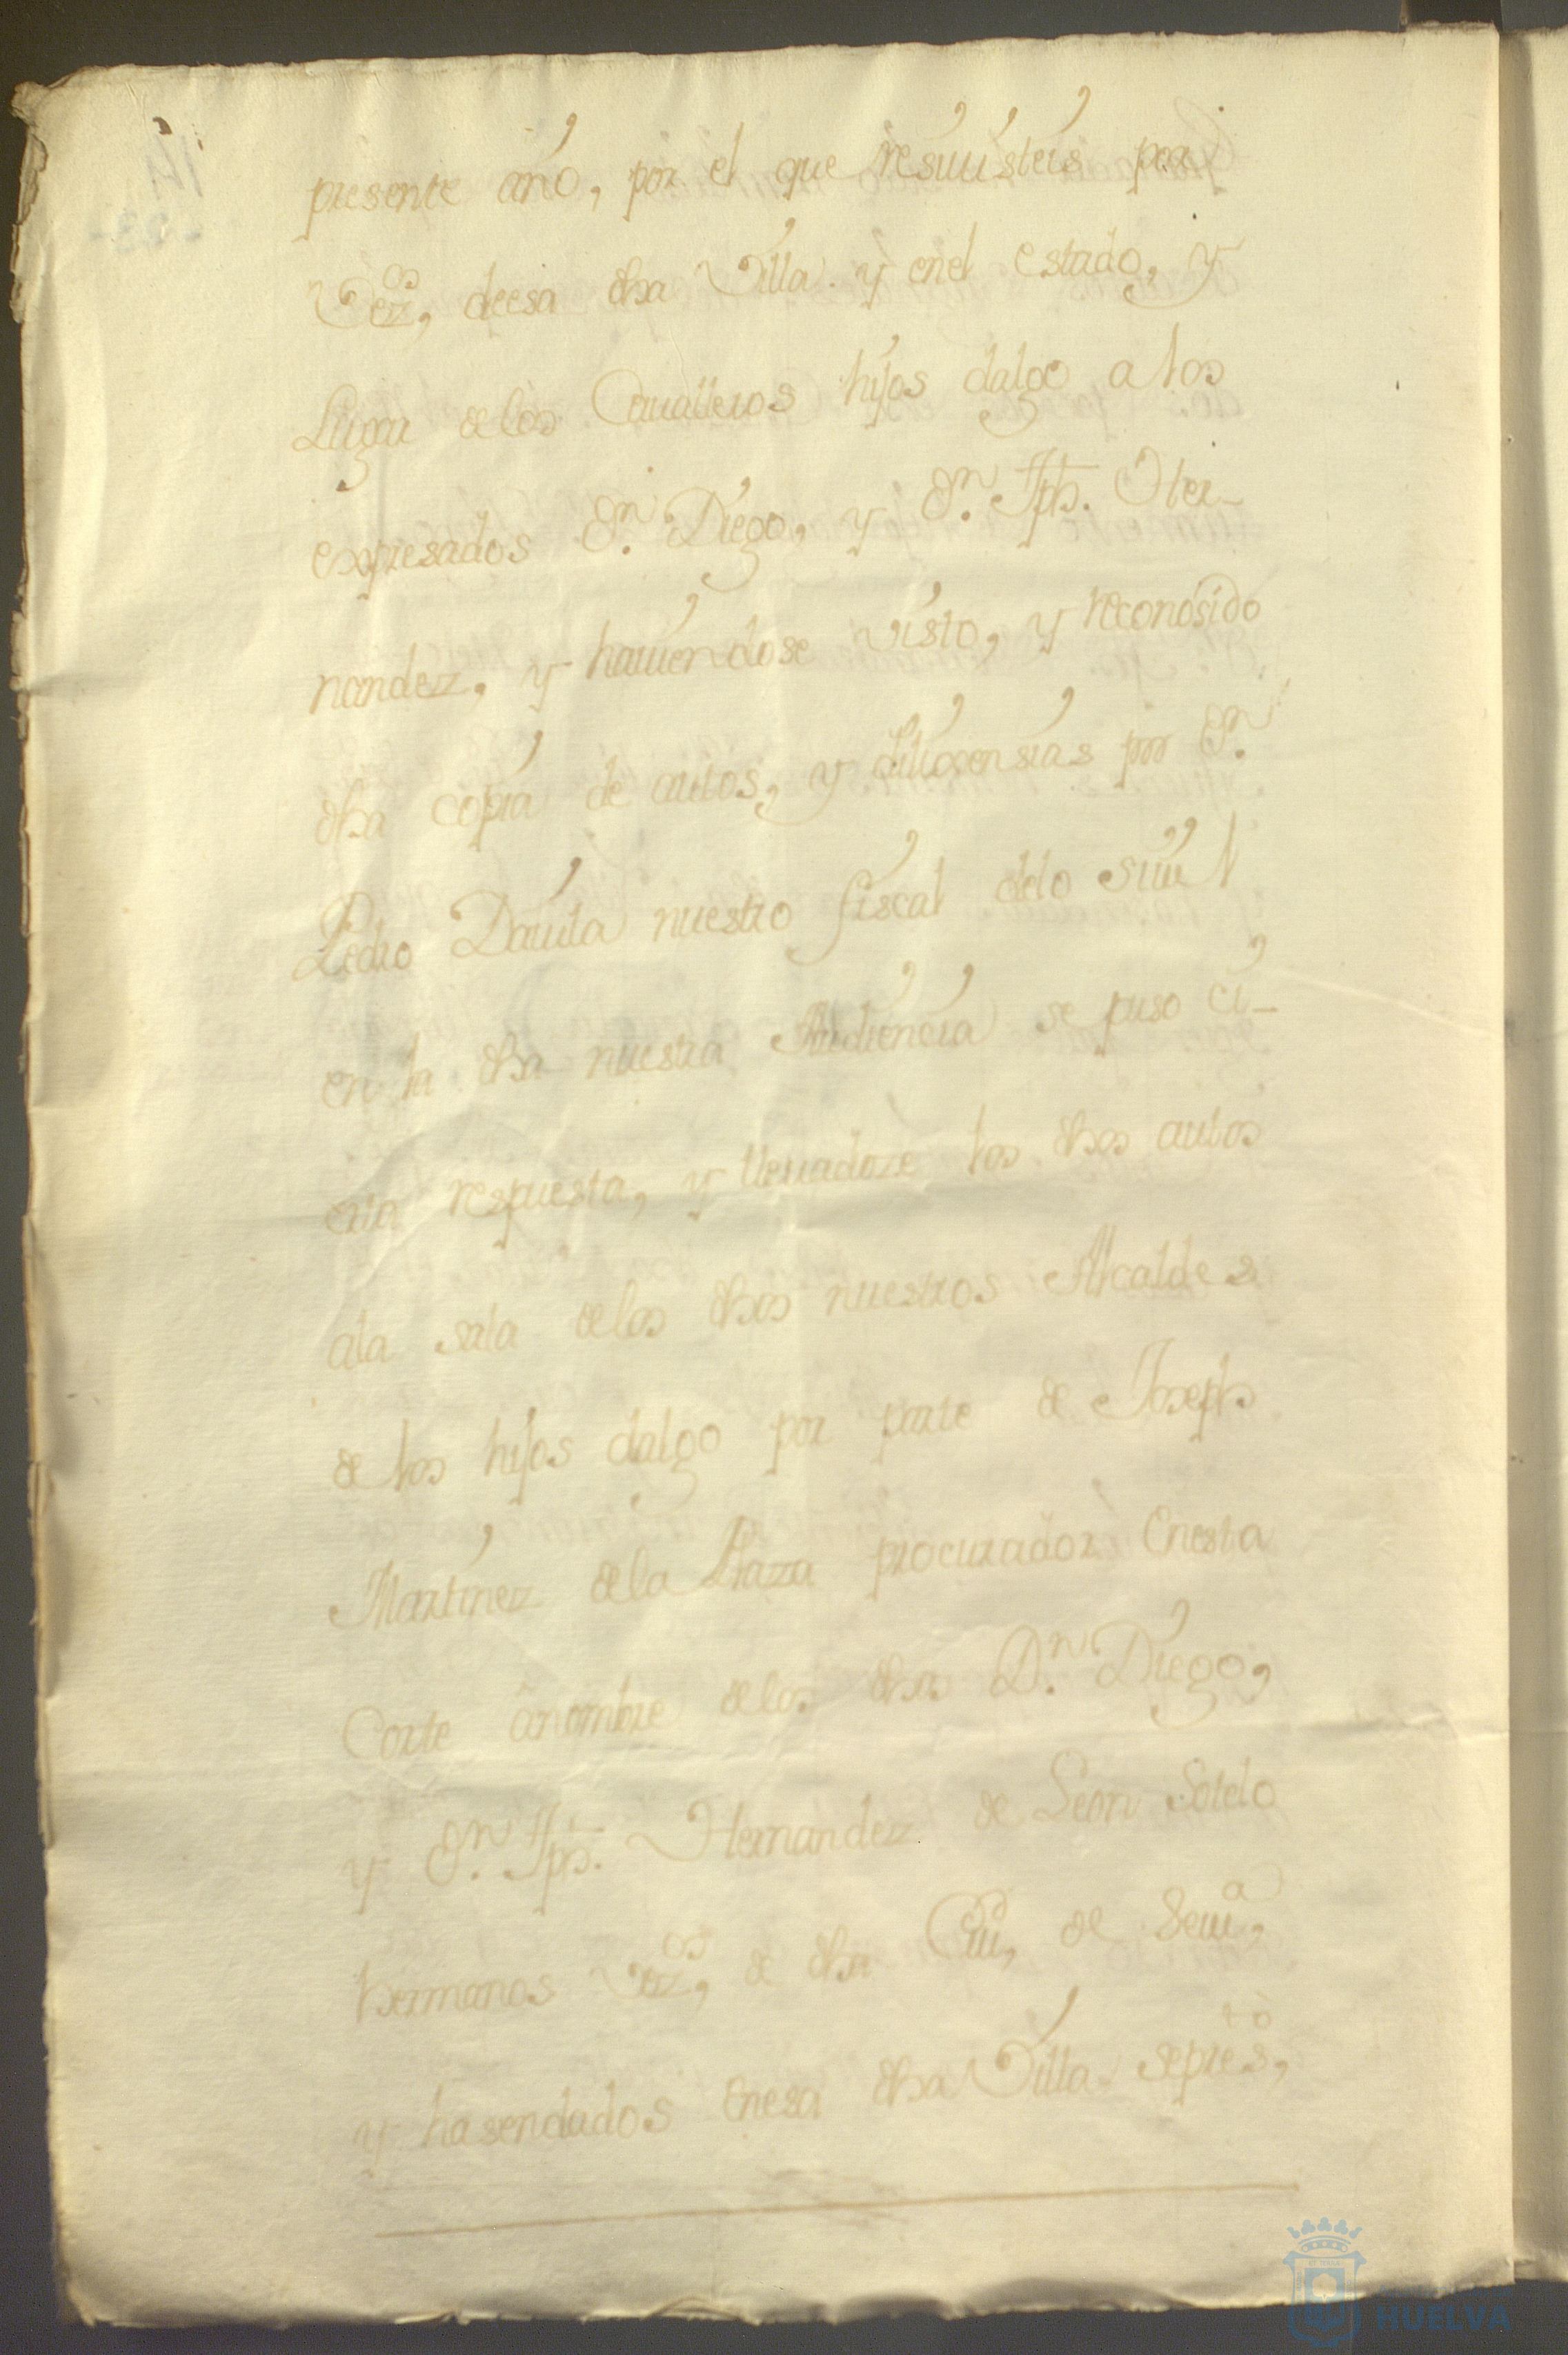 presente año, por el que resiuisteis por
Vez.os, deesa dha Villa y enel estado, y
Lugar delos Caualleros hijos dalgo a los
expresados Dn. Diego, y Dn. Jph. Her-
nandez, y hauiendose visto, y reconosido
dha copia de autos, y dilixensias por Dn.
Pedro Dauila nuestro fiscal delo siuil
en la dha nuestra Audiencia se puso ci-
erta respuesta, y lleuadoze los dhos autos
ala sala delos dhos nuestros Alcaldes
de los hijos dalgo por parte de Joseph
Martinez dela Plaza procurador Enesta
Corte ānombre delos dhos Dn. Diego,
y Dn. Jph. Hernandez de Leon Sotelo
hermanos Vez.os, de dha Ciu.d, de Seui.a,
y hasendados Enesa dha Villa sepres.to,
HUELVA